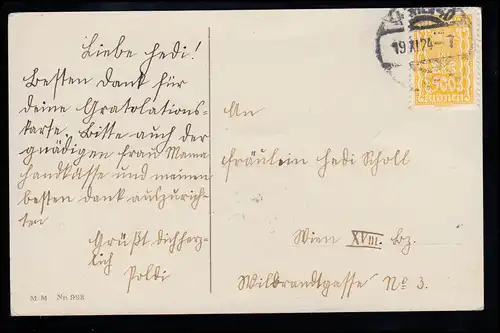 Liebe Hedi!
Besten Dank für
deine Gratolations-
karte. Bitte auch der
gnädigen Frau Mama
Handkässe und meinen
besten Dank auszurich-
ten
Grüßt dich herz-
lich
Poldi
M. M Nr. 992
19 XI 24
500
An
Fräulein Hedi Scholl
Wien XVIII. Bz.
Wilbrandtgasse No 3.